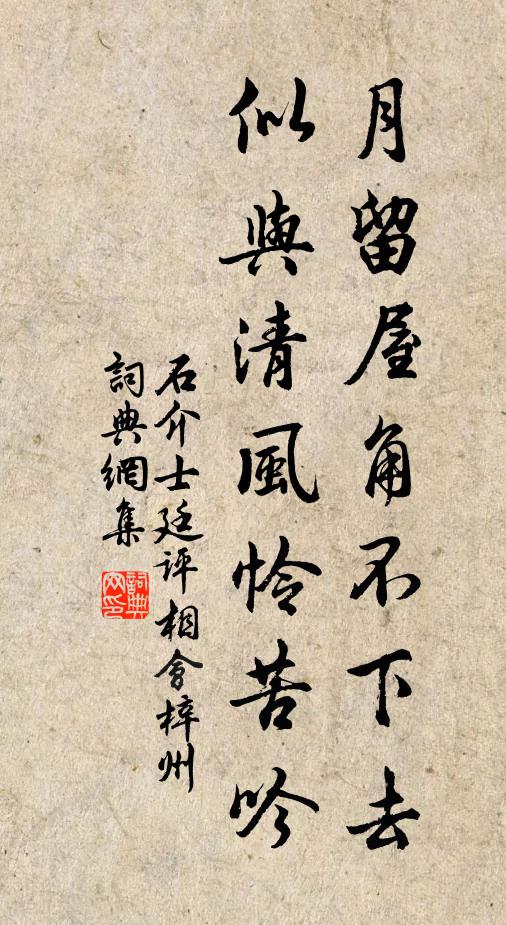 月留屋角不下去
似與清風怜苦吟
石介士廷评相會梓州
詞典網集
詞典網印